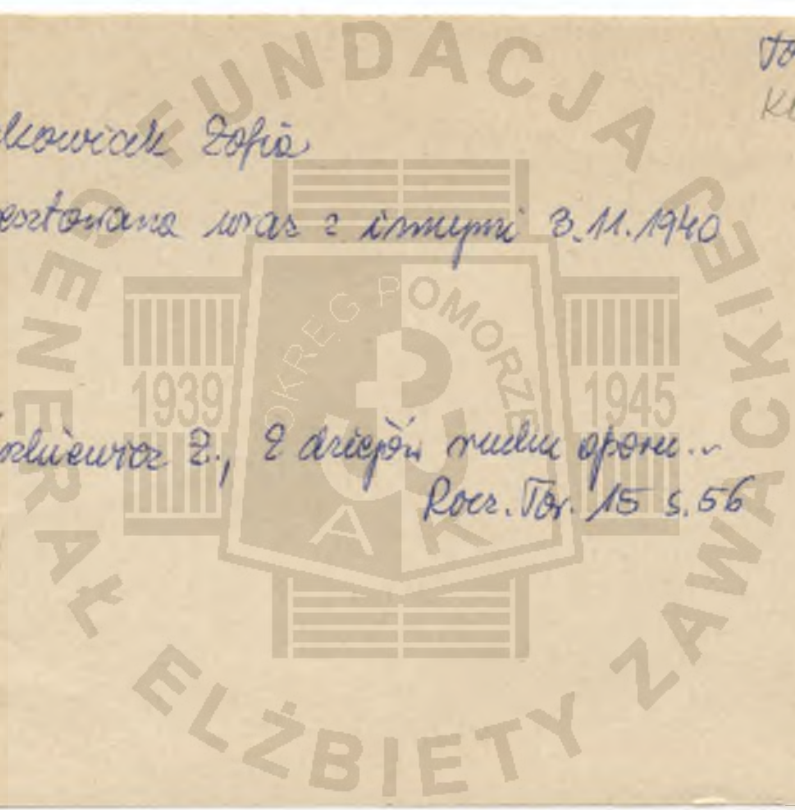 To
Kl
kowicek Zofia
esztowana wraz z innymi 3.11.1940
Z., Z dziejów ruchu oporu..
Rocz. Tor. 15 s. 56
FUNDACJA GENERAŁ ELŻBIETY ZAWACKIEJ
OKRĘG POMORZE
1939 1945
A K